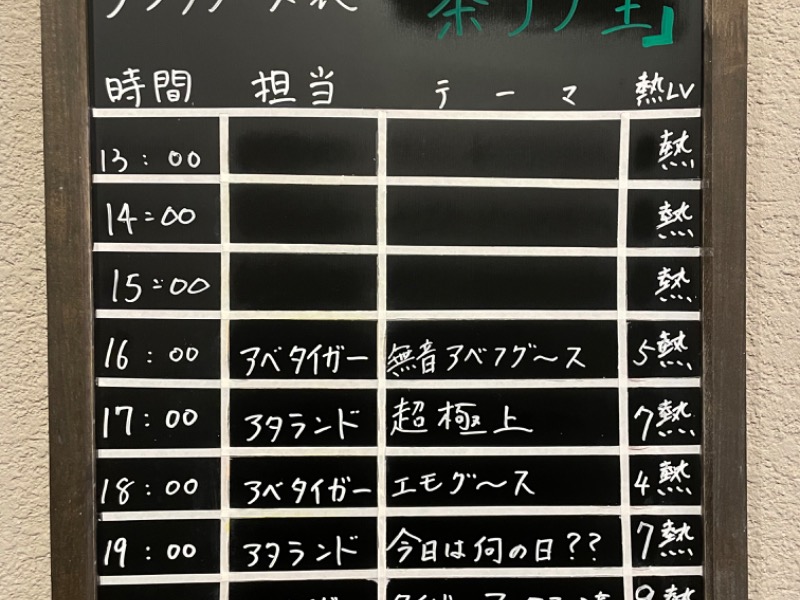 時間 担当 テーマ 熱LV
13:00 熱
14:00 熱
15:00 熱
16:00 アベタイガー 無音アベフグ〜ス 5熱
17:00 アタランド 超極上 7熱
18:00 アベタイガー エモグ〜ス 4熱
19:00 アタランド 今日は何の日?? 7熱